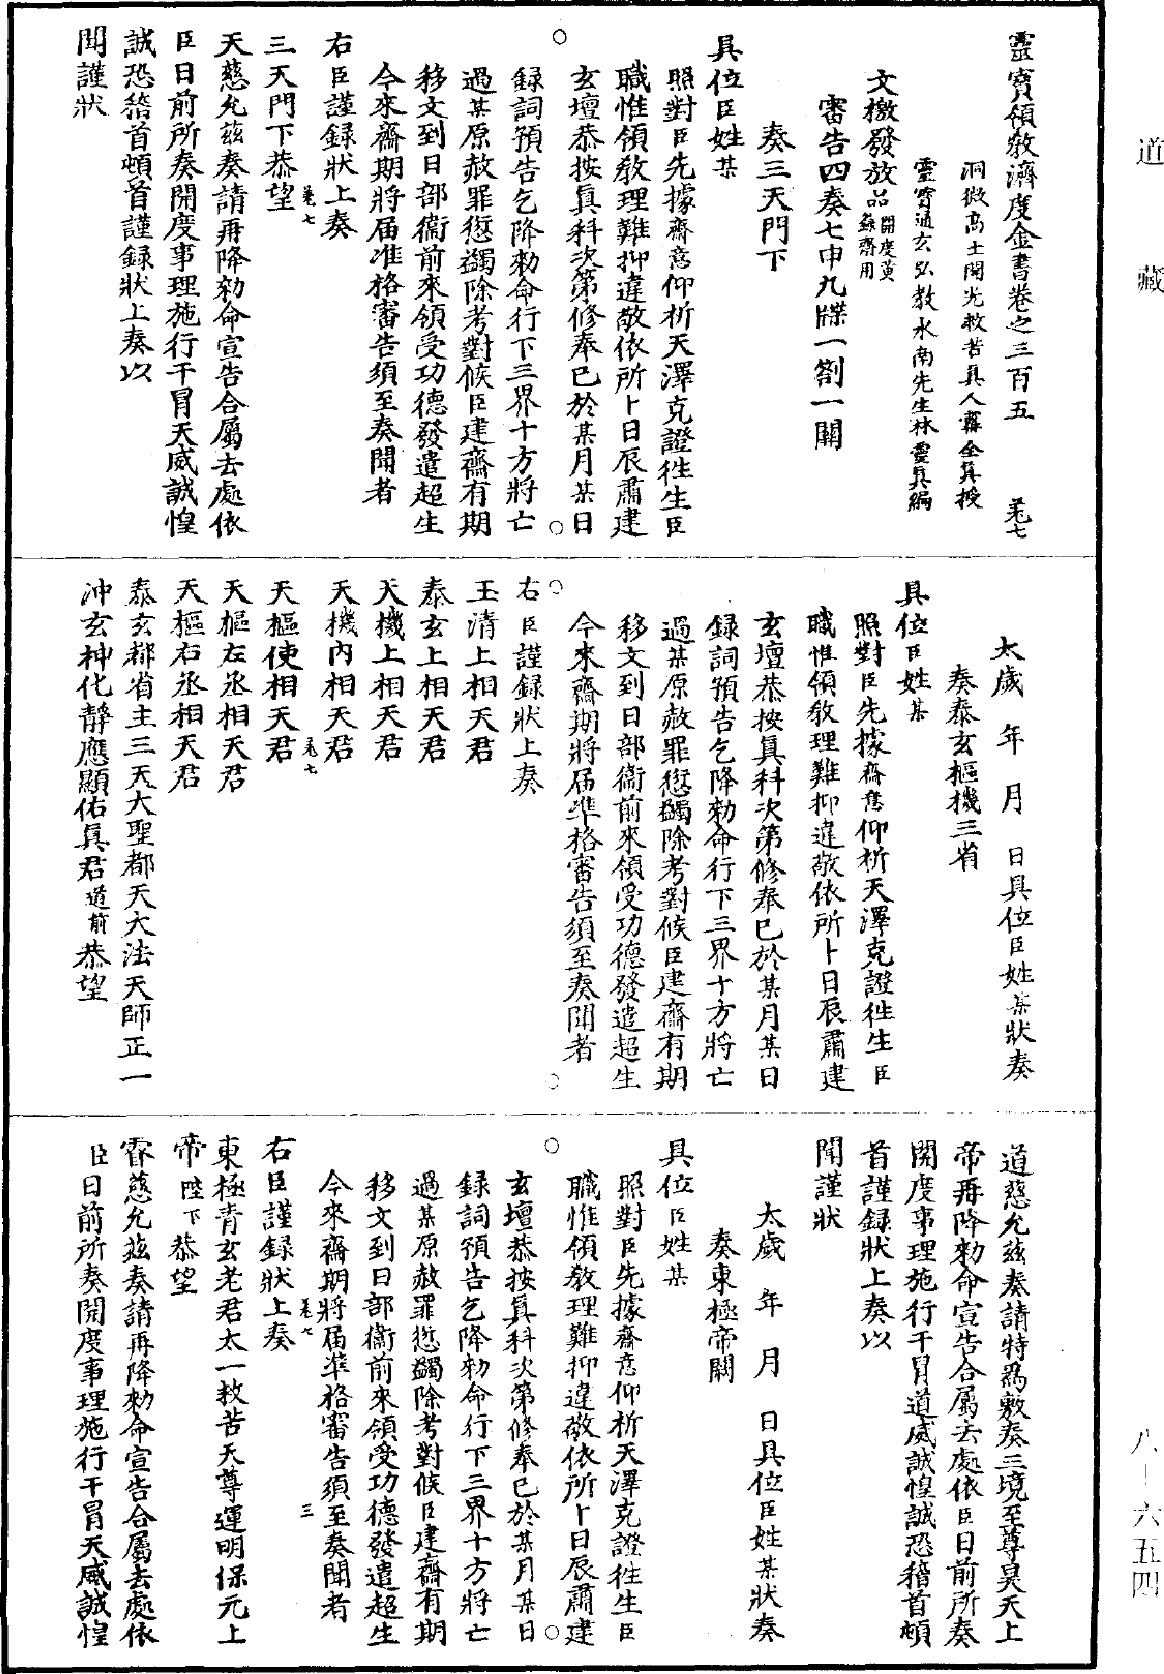 道藏
靈寶領教濟度金書卷之三百五 㞳七
洞微高士開光救苦真人甯全真授
靈寶通玄弘教水南先生林靈真編
文檄發放品開度黃籙齋用
審告四奏七申九牒一劄一關
奏三天門下
具位臣姓某
照對臣先據齋意仰祈天澤克證徃生臣
職惟領教理難抑違敬依所卜日辰肅建
玄壇恭按真科次第修奉已於某月某日
録詞預告乞降勑命行下三界十方將亡
過某原赦罪愆蠲除考對候臣建齋有期
移文到日部衞前來領受功德發遣超生
今來齋期將届准格審告須至奏聞者
右臣謹録狀上奏
三天門下恭望
天慈允兹奏請再降勑命宣告合屬去處依
臣日前所奏開度事理施行干冒天威誠惶
誠恐稽首頓首謹録狀上奏以
聞謹狀
太歲 年 月 日具位臣姓某狀奏
奏泰玄樞機三省
具位臣姓某
照對臣先據齋意仰祈天澤克證徃生臣
職惟領教理難抑違敬依所卜日辰肅建
玄壇恭按真科次第修奉已於某月某日
録詞預告乞降勑命行下三界十方將亡
過某原赦罪愆蠲除考對候臣建齋有期
移文到日部衞前來領受功德發遣超生
今來齋期將届準格審告須至奏聞者
右臣謹録狀上奏
玉清上相天君
泰玄上相天君
天機上相天君
天機內相天君
天樞使相天君
天樞左丞相天君
天樞右丞相天君
泰玄都省主三天大聖都天大法天師正一
沖玄神化靜應顯佑真君道前恭望
道慈允兹奏請特爲敷奏三境至尊昊天上
帝再降勑命宣告合屬去處依臣日前所奏
開度事理施行干冒道威誠惶誠恐稽首頓
首謹録狀上奏以
聞謹狀
太歲 年 月 日具位臣姓某狀奏
奏東極帝闕
具位臣姓某
照對臣先據齋意仰祈天澤克證徃生臣
職惟領教理難抑違敬依所卜日辰肅建
玄壇恭按真科次第修奉已於某月某日
録詞預告乞降勑命行下三界十方將亡
過某原赦罪愆蠲除考對候臣建齋有期
移文到日部衞前來領受功德發遣超生
今來齋期將届準格審告須至奏聞者
右臣謹録狀上奏
東極青玄老君太一救苦天尊運明保元上
帝陛下恭望
睿慈允兹奏請再降勑命宣告合屬去處依
臣日前所奏開度事理施行干冒天威誠惶
八–六五四